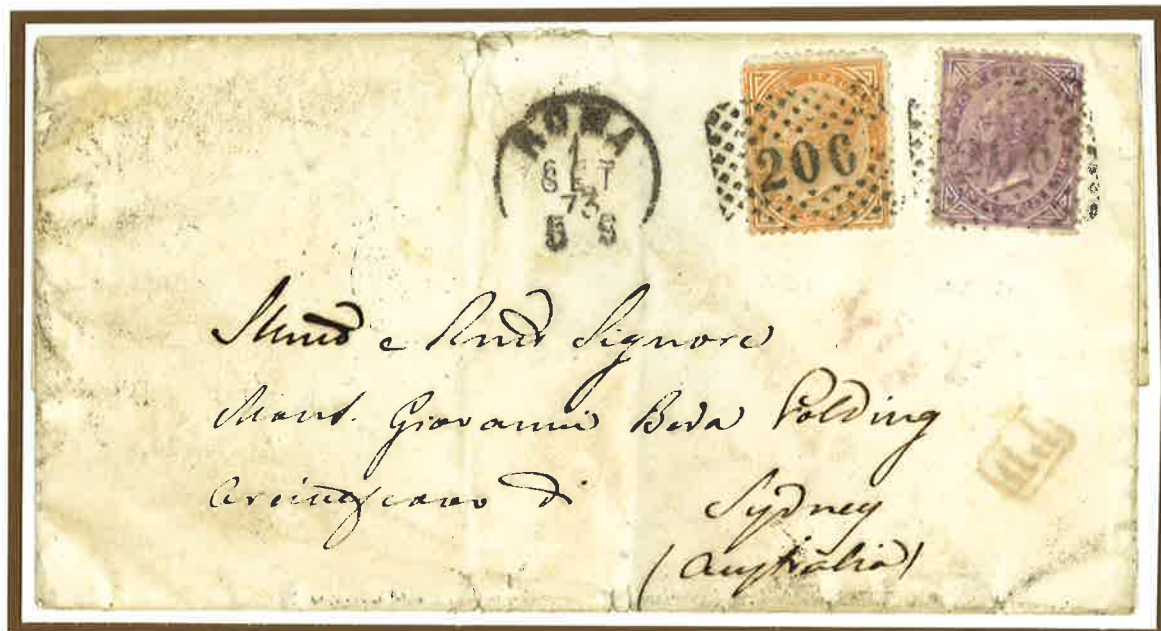 ROMA
1
SET
73
5 S
206
206
Illmo e Rmo Signore
Mons. Giovanni Beda Polding
Arcivescovo di
Sydney
(Australia)
P.D.